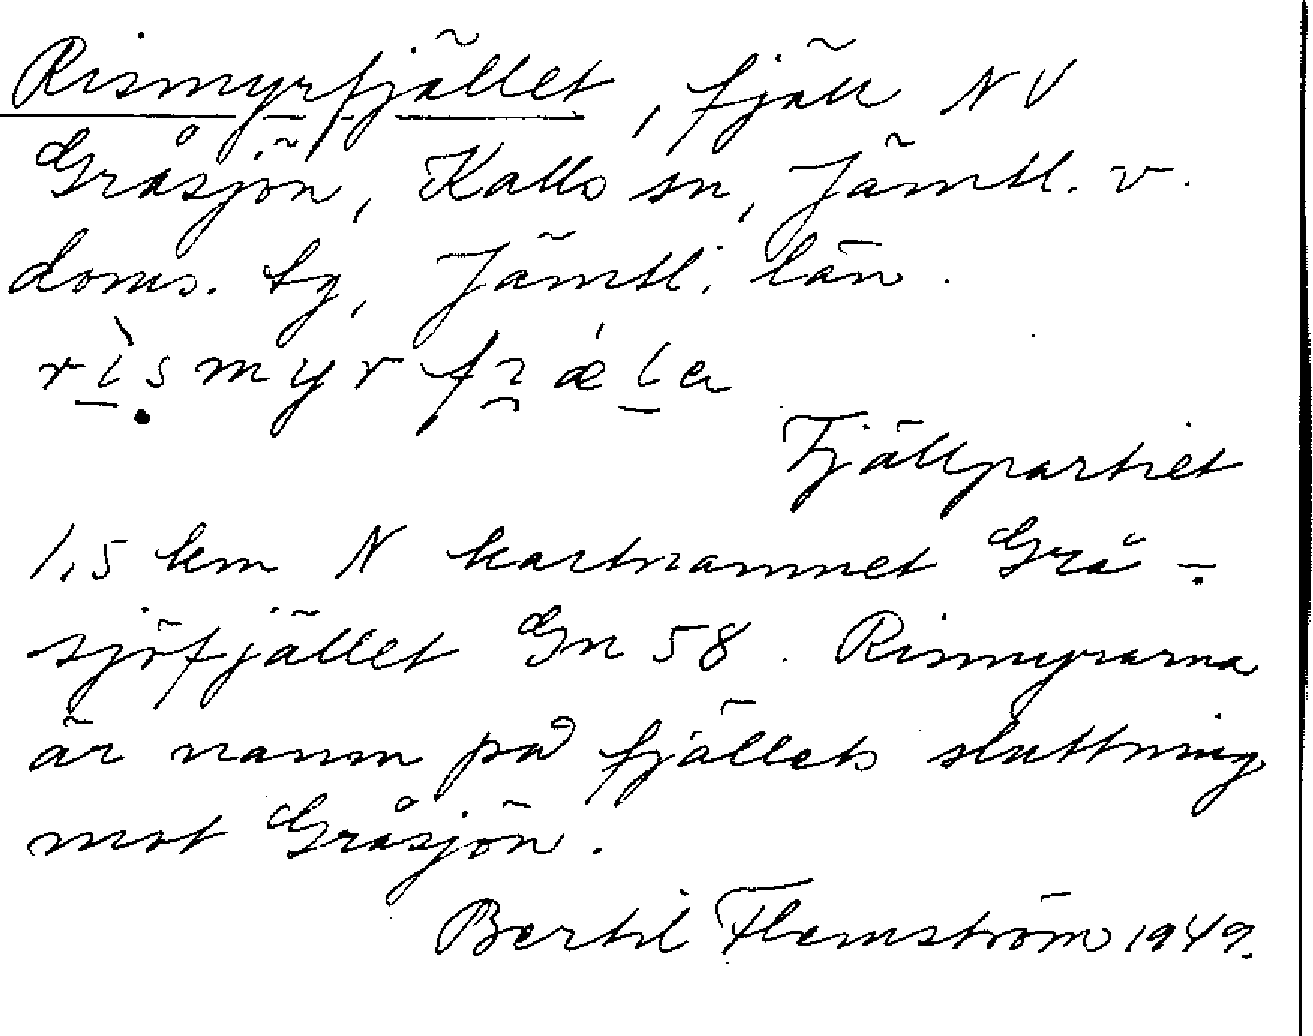 Rismyrfjället, fjäll NV
Gråsjön, Kalls sn, Jämtl. v.
doms. tg, Jämtl. län.
rìsmyrfjæ̀la
Fjällpartiet
1,5 km N kartnamnet Grå-
sjöfjället Gn 58. Rismyrarna
är namn på fjällets sluttning
mot Gråsjön.
Bertil Flemström 1949.